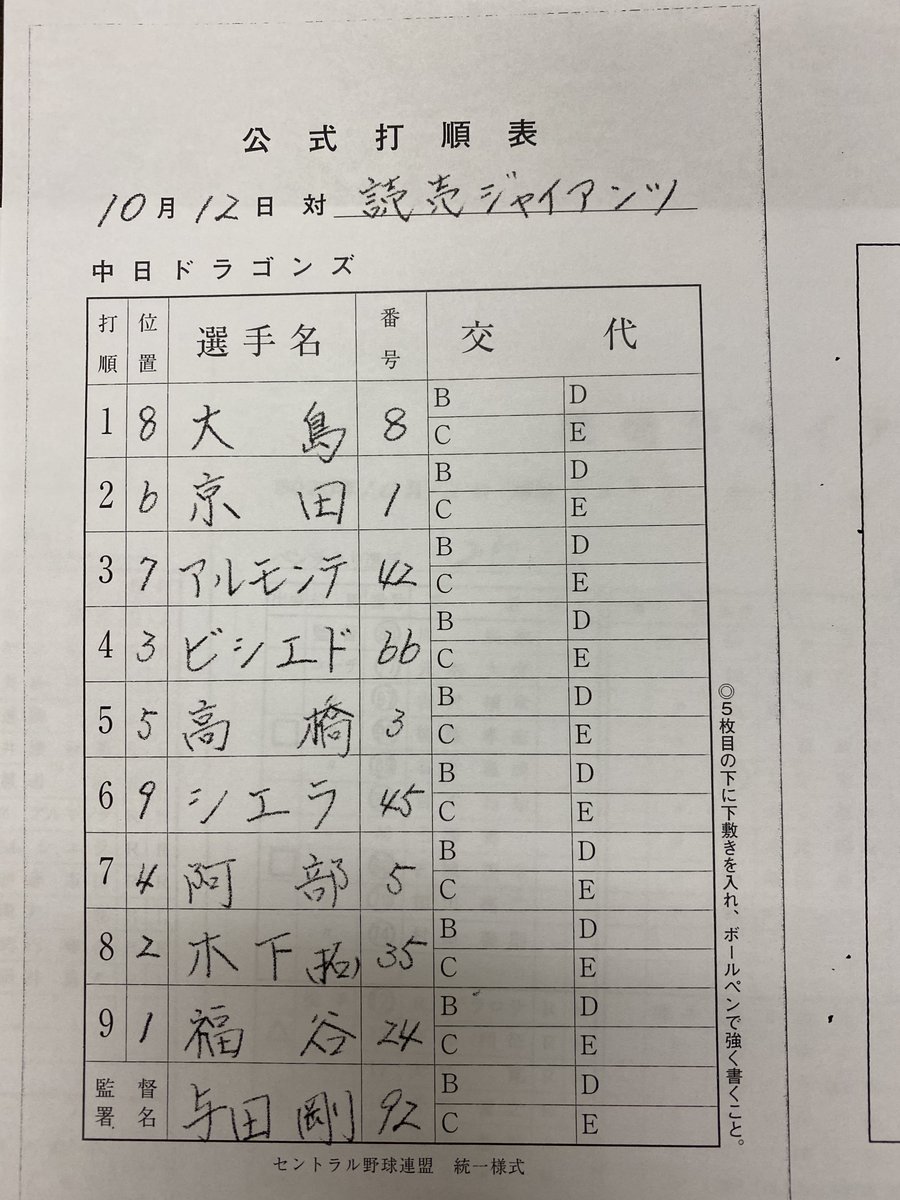 公式打順表
10月12日 対 読売ジャイアンツ
中日ドラゴンズ
打順 位置 選手名 番号 交代
1 8 大島 8 B D C E
2 6 京田 1 B D C E
3 7 アルモンテ 42 B D C E
4 3 ビシエド 66 B D C E
5 5 高橋 3 B D C E
6 9 シエラ 45 B D C E
7 4 阿部 5 B D C E
8 2 木下(拓) 35 B D C E
9 1 福谷 24 B D C E
監督署名 与田剛 92 B D C E
◎5枚目の下に下敷きを入れ、ボールペンで強く書くこと。
セントラル野球連盟 統一様式